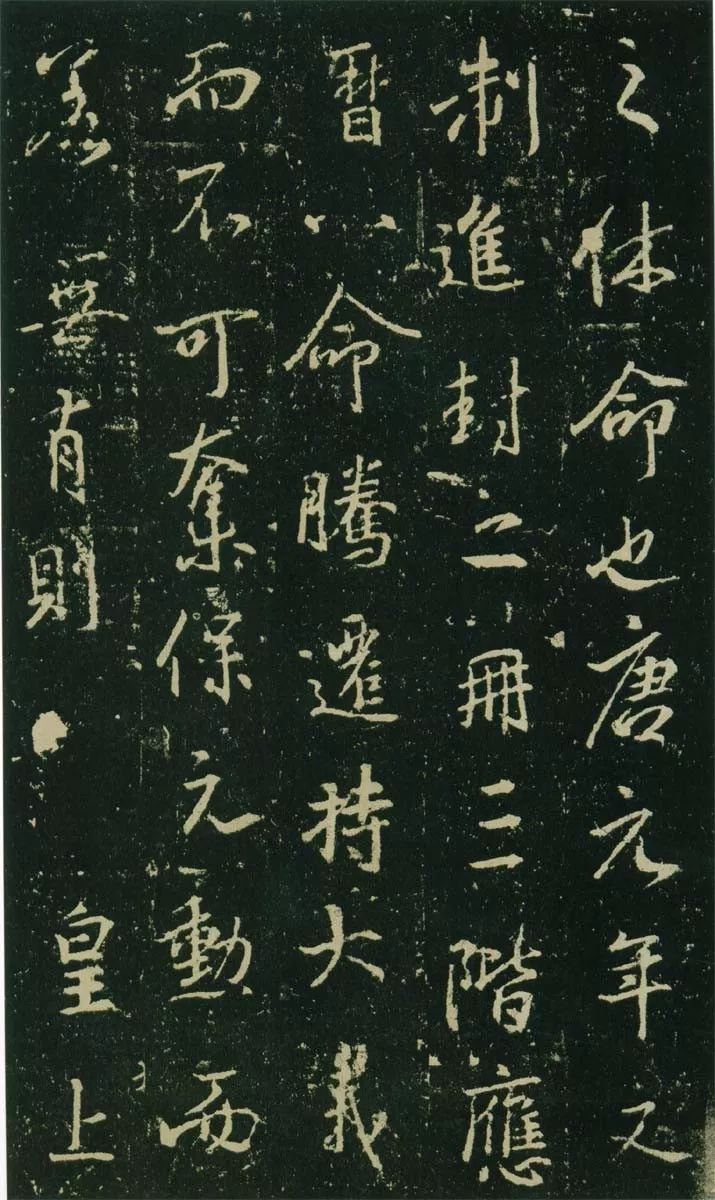 之休命也唐元年之
制進封二冊三階應
曆八命騰遷持大義
而不可奪保元勳而
恙無有則 皇上